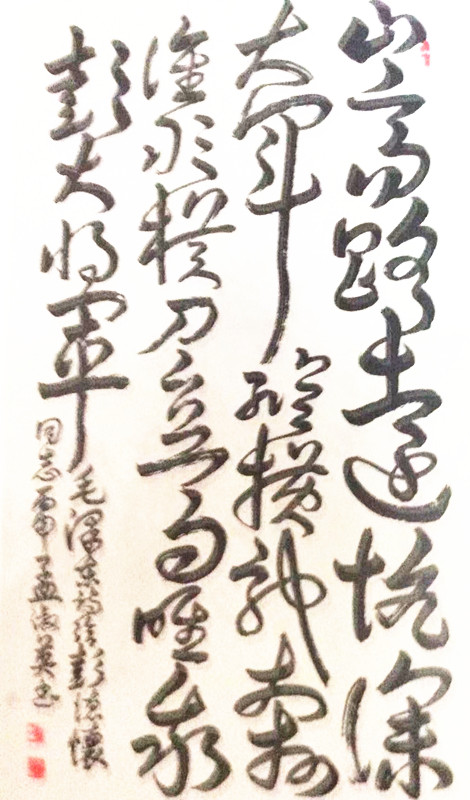 山高路遠坑深
大軍縱橫馳奔
誰敢橫刀立馬唯我
彭大將軍
毛澤東彭德懷
同志丙申孟淑英书